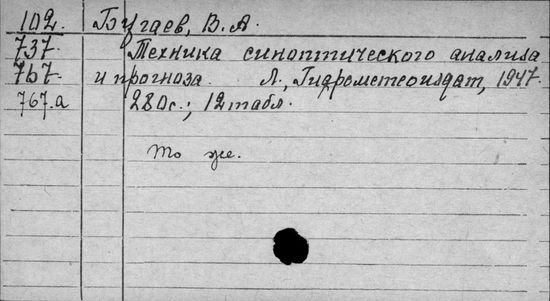 102. Бугаев, В. А.
737. Техника синоптического анализа
767. и прогноза. Л., Гидрометеоиздат, 1947.
767.а 280с.; 12табл.
То же.